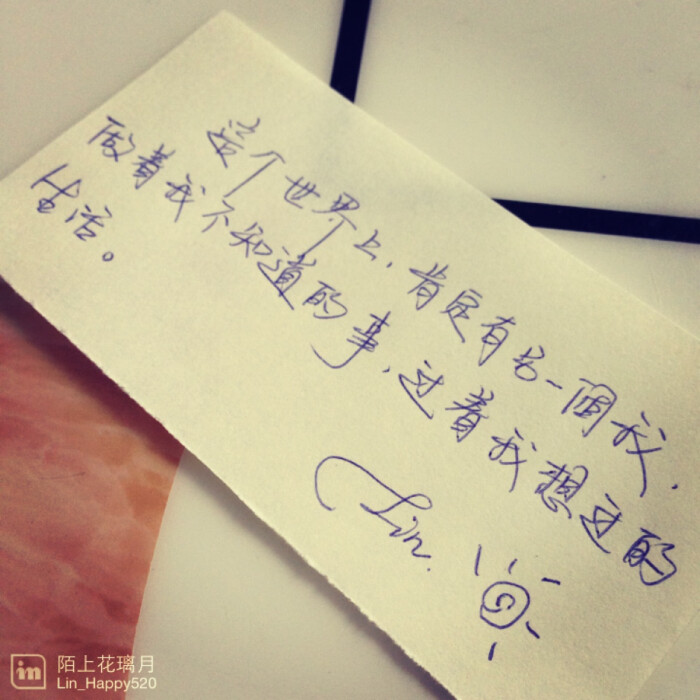 这个世界上,肯定有另一個我,
做着我不知道的事,过着我想过的
生活。
Lin.
in
陌上花璃月
Lin_Happy520